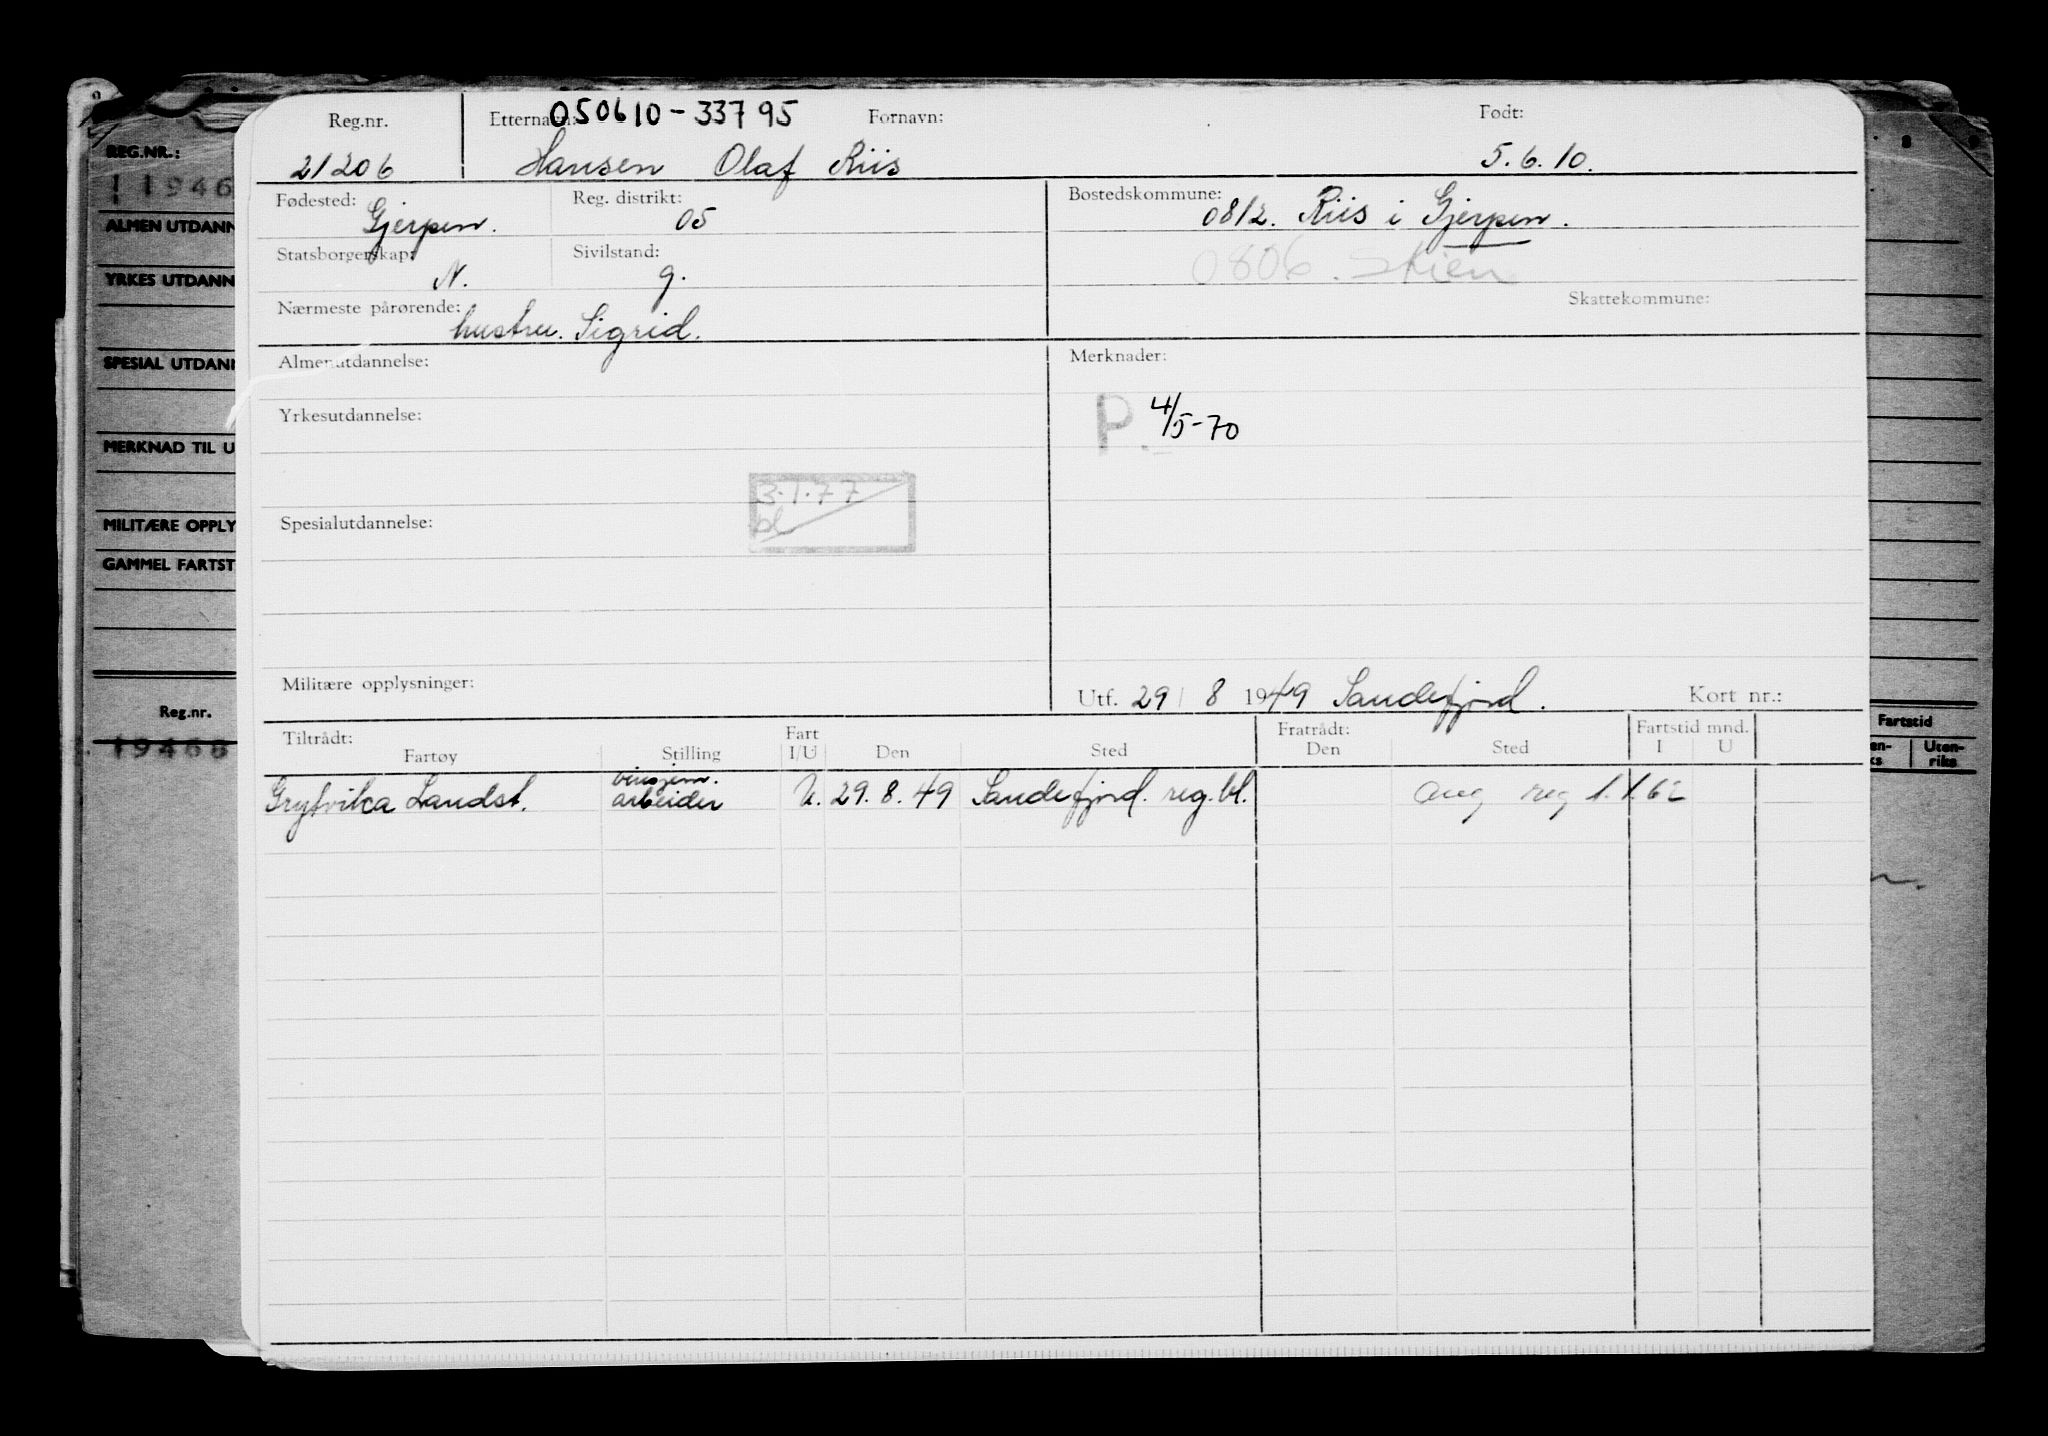 Reg.nr. Etternavn: 050610-33795 Fornavn: Født:
21206 Hansen Olaf Riis 5.6.10.
Fødested: Gjerpen. Reg. distrikt: 05 Bostedskommune: 0812. Riis i Gjerpen.
Statsborgerskap: N. Sivilstand: g. 0806. Skien
Nærmeste pårørende: hustru. Sigrid. Skattekommune:
Almenutdannelse: Merknader:
Yrkesutdannelse: P. 4/5-70
3.1.77
bl
Spesialutdannelse:
Militære opplysninger: Utf. 29 / 8 1949 Sandefjord. Kort nr.:
Tiltrådt: Fart Fratrådt: Fartstid mnd.
Fartøy Stilling I/U Den Sted Den Sted I U
Grytvika Landst. arbeider U. 29.8.49 Sandefjord. reg.bl. reg 1.1.62
REG.NR.:
19468
ALMEN UTDANN
YRKES UTDANN
SPESIAL UTDANN
MERKNAD TIL U
MILITÆRE OPPLY
GAMMEL FARTST
Reg.nr.
19468
Fartstid
en-
ks
Uten-
riks